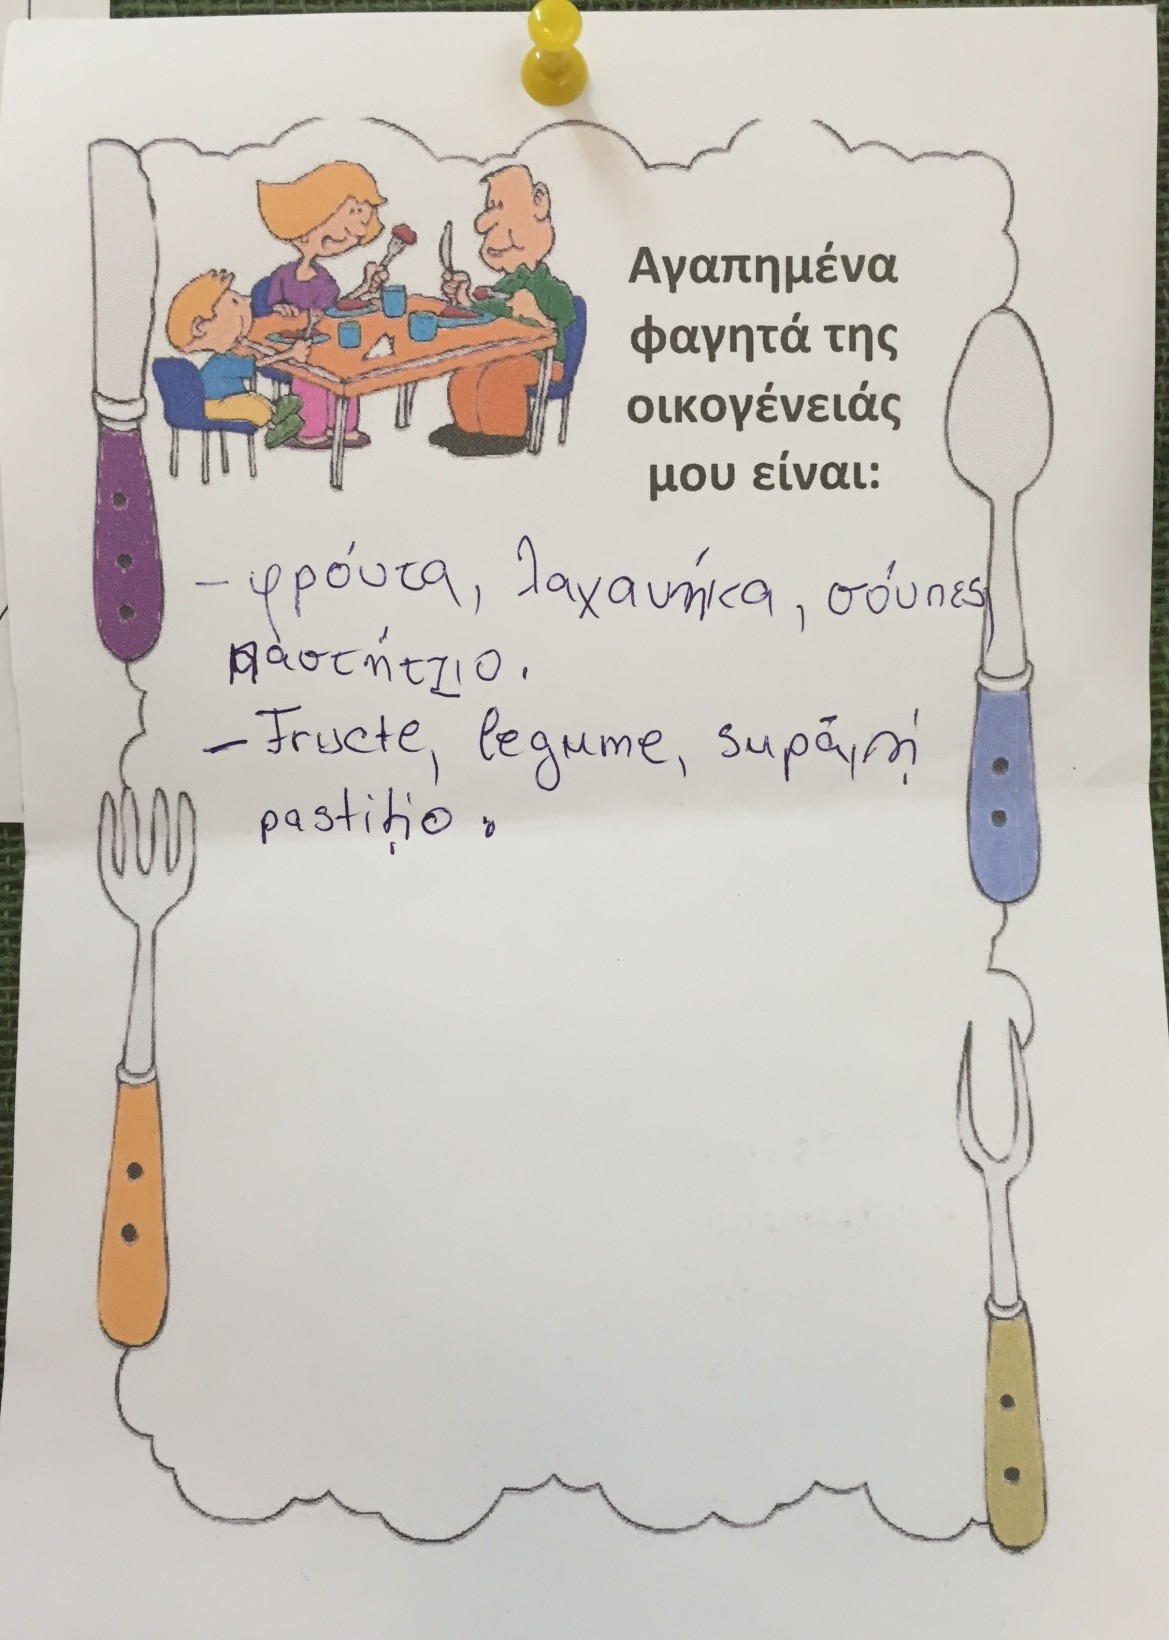 Αγαπημένα
φαγητά της
οικογένειάς
μου είναι:
- φρούτα, λαχανήκα, σούπες
παστήτζιο.
- Fructe, legume, supă, și
pastițio.